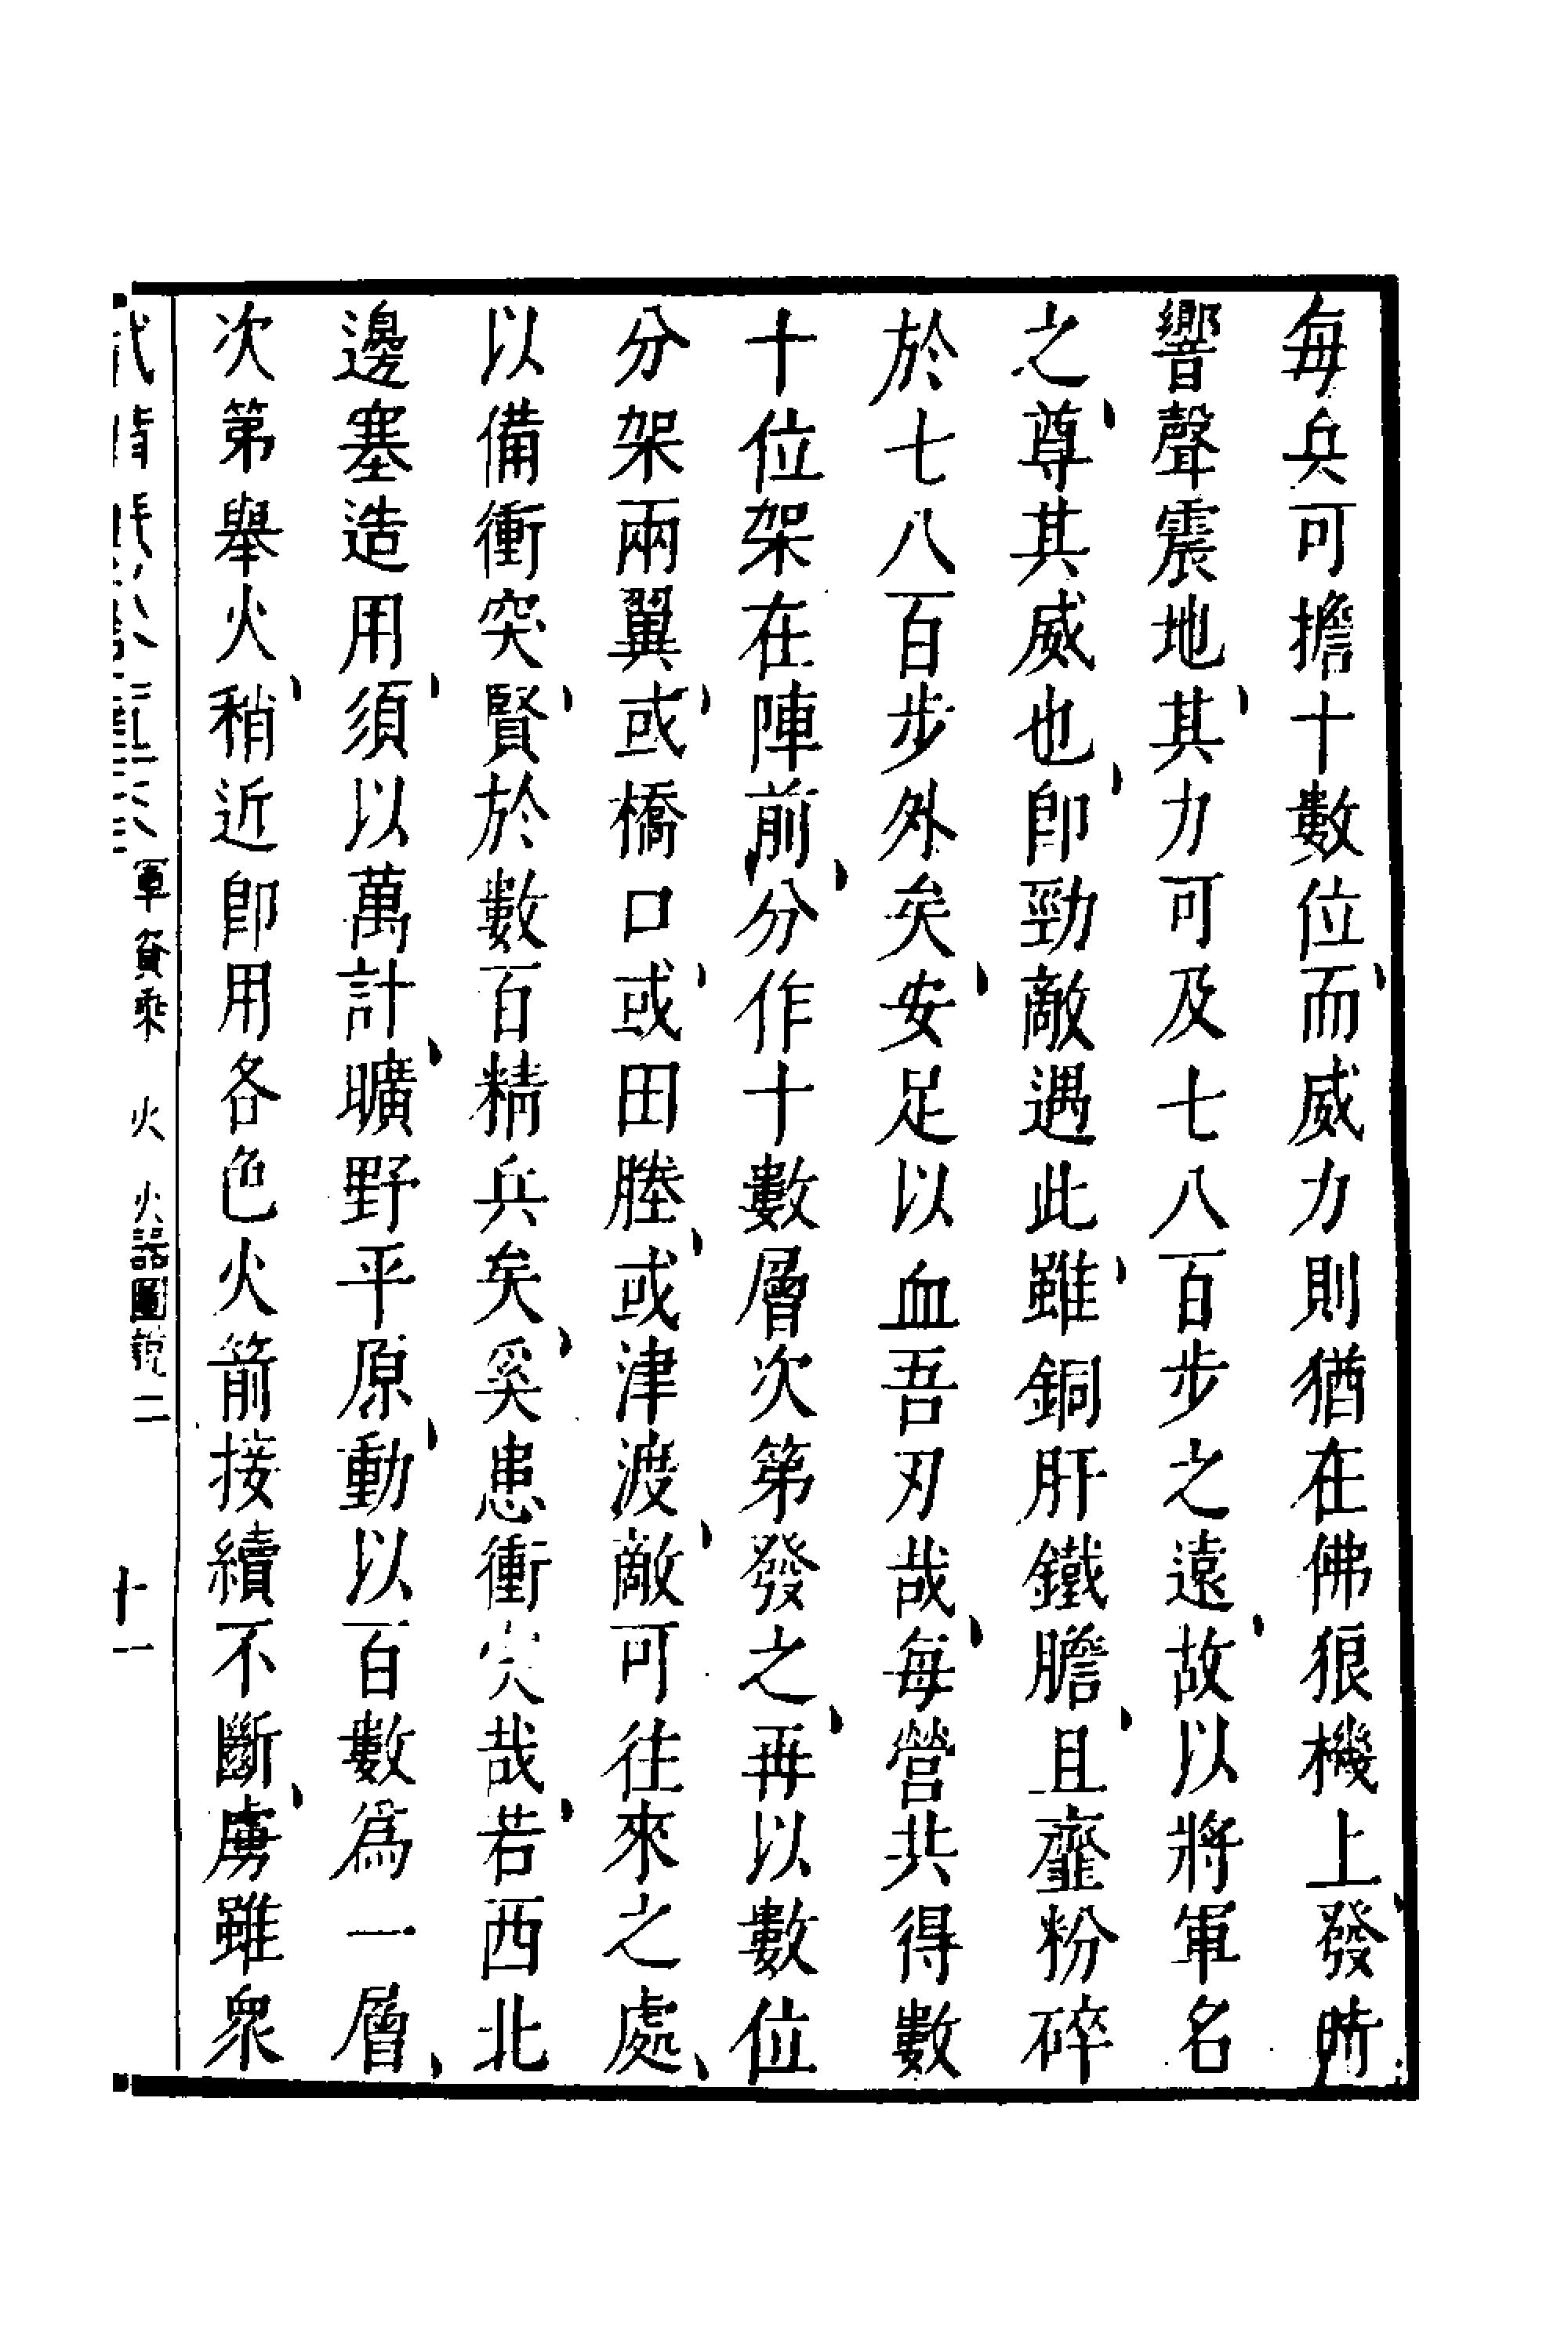 每兵可擔十數位而威力則猶在佛狼機上發時
響聲震地其力可及七八百步之遠故以將軍名
之尊其威也卽勁敵遇此雖銅肝鐵膽且虀粉碎
於七八百步外矣安足以血吾刃哉每營共得數
十位架在陣前分作十數層次第發之再以數位
分架兩翼或橋口或田塍或津渡敵可往來之處
以備衝突賢於數百精兵矣奚患衝突哉若西北
邊塞造用須以萬計曠野平原動以百數爲一層
次第舉火稍近卽用各色火箭接續不斷虜雖衆
軍資乘 火 火器圖說二
十一